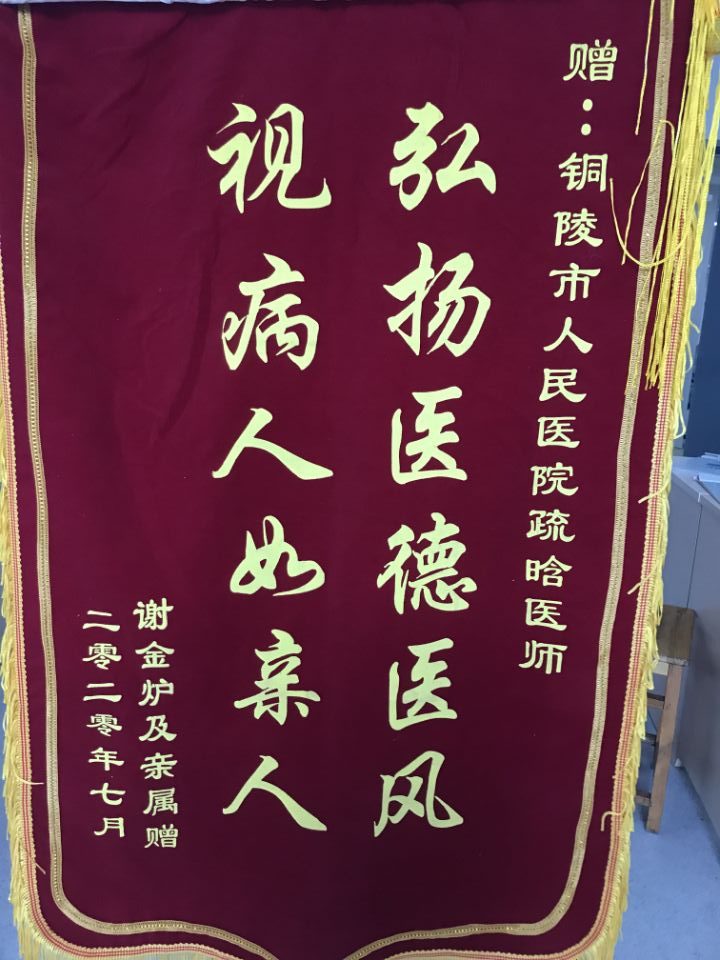 赠：铜陵市人民医院疏晗医师
弘扬医德医风
视病人如亲人
谢金炉及亲属赠
二零二零年七月